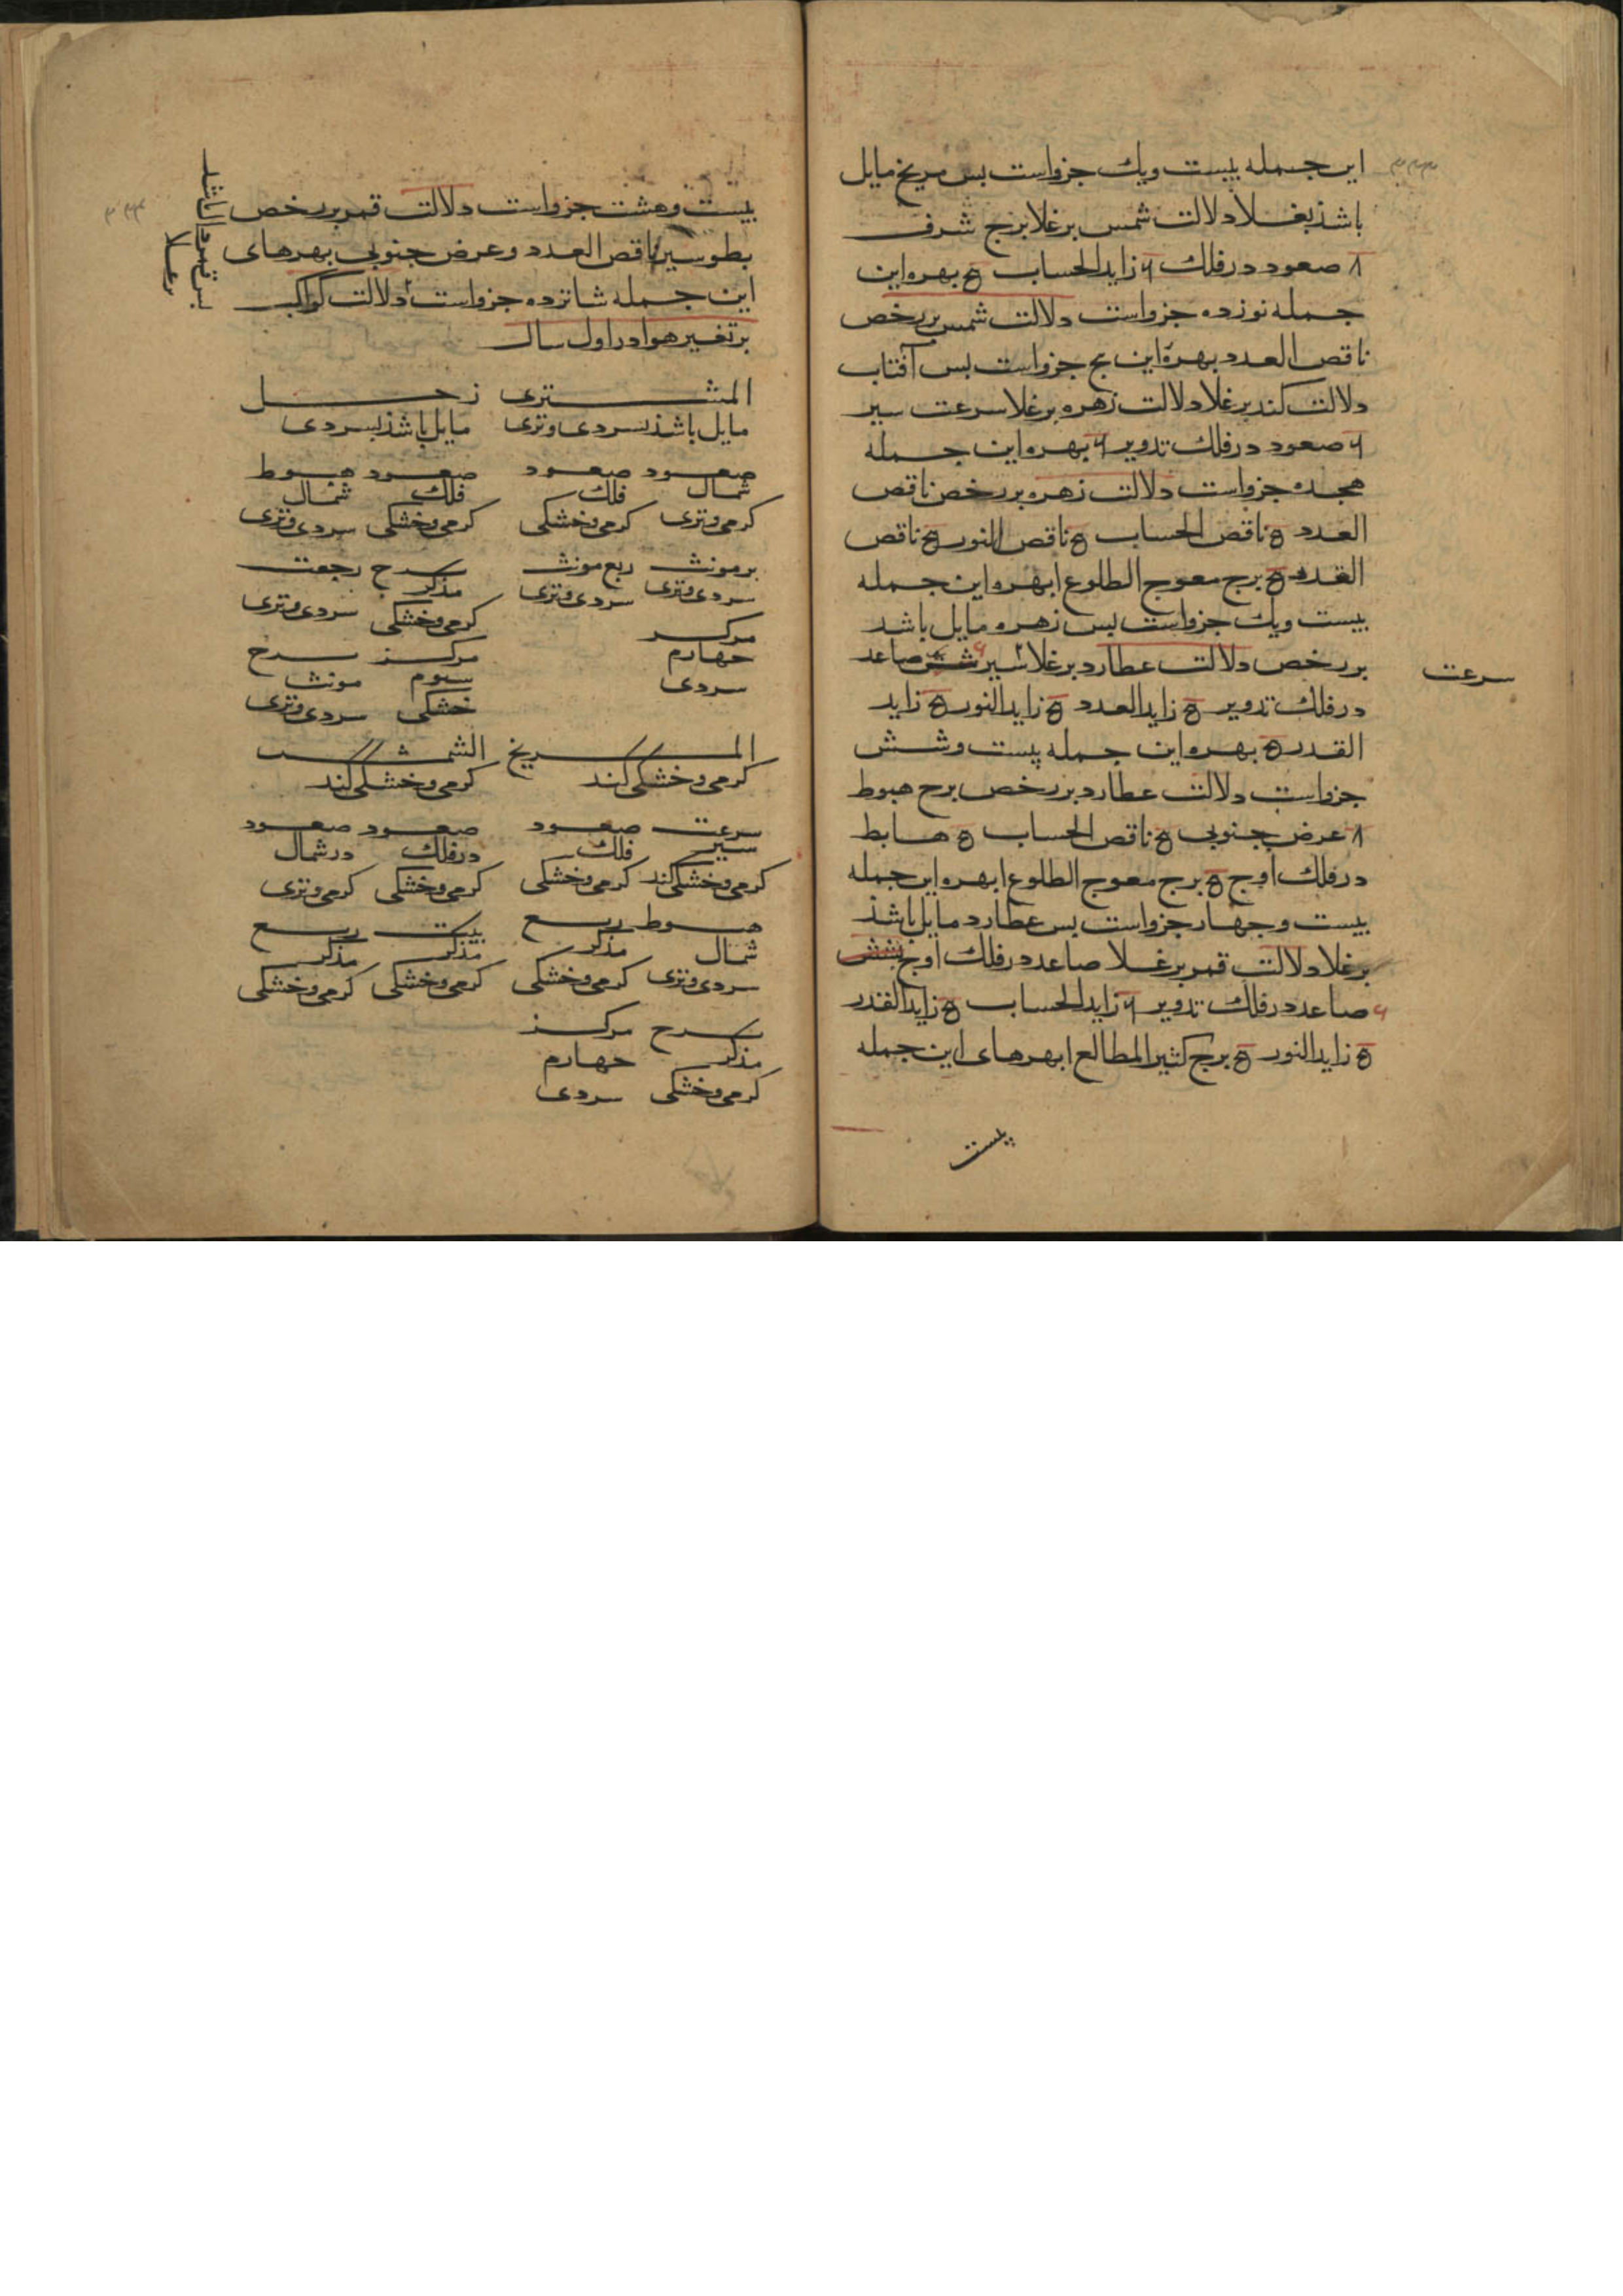 این جمله بیست ویك جزواست بس مریخ مایل
باشذ بغلا دلالت شمس برغلا برج شرف
۸ صعود در فلك ۴ زاید الحساب ۵ بهره این
جمله نوزده جزواست دلالت شمس بررخص
ناقص العدد بهرهٔ این پج جزواست بس آفتاب
دلالت کند برغلا دلالت زهره برغلا سرعت سیر
۴ صعود در فلك تدویر ۴ بهره این جمله
هجده جزواست دلالت زهره بررخص ناقص
العدد ۵ ناقص الحساب ۵ ناقص النور ۵ ناقص
القدر ۵ برج معوج الطلوع ا بهره این جمله
بیست ویك جزواست بس زهره مایل باشد
بررخص دلالت عطارد برغلا سیر صاعد
سرعت
در فلك تدویر ۵ زاید العدد ۵ زاید النور ۵ زاید
القدر ۵ بهره این جمله بیست وشش
جزواست دلالت عطارد بررخص برج هبوط
۸ عرض جنوبی ۵ ناقص الحساب ۵ هابط
در فلك اوج ۵ برج معوج الطلوع ا بهره این جمله
بیست وجهار جزواست بس عطارد مایل باشذ
برغلا دلالت قمر برغلا صاعد در فلك اوج
۴ صاعد در فلك تدویر ۴ زاید الحساب ۵ زاید القدر
۵ زاید النور ۵ برج کثیر المطالع ا بهرهای این جمله
بیست
بیست وهشت جزواست دلالت قمر بررخص
بطو سیر ناقص العدد وعرض جنوبی بهرهای
این جمله شانزده جزواست دلالت کواکب
برتغییر هوا در اول سال
المشتری زحل
مایل باشذ بسردی وتری مایل باشذ بسردی
صعود صعود صعود هبوط
شمال فلك فلك شمال
کرمی وتری کرمی وخشکی کرمی وخشکی سردی وتری
برمونث ربع مونث برج رجعت
سردی وتری سردی وتری مذکر
کرمی وخشکی سردی وتری
مرکز
جهارم مرکز برج
سردی سیوم مونث
خشکی سردی وتری
المریخ الشمس
کرمی وخشکی کند کرمی وخشکی کند
سرعت صعود صعود صعود
سیر فلك در فلك در شمال
کرمی وخشکی کند کرمی وخشکی کرمی وخشکی کرمی وتری
هبوط ربع بیت ربع
شمال مذکر مذکر مذکر
سردی وتری کرمی وخشکی کرمی وخشکی کرمی وخشکی
برج مرکز
مذکر جهارم
کرمی وخشکی سردی